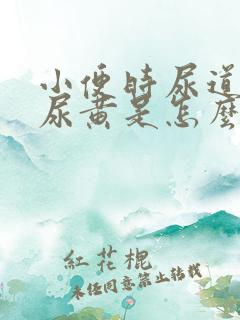 小便時尿道
尿黃是怎麼
紅花棍
未經同意禁止轉載